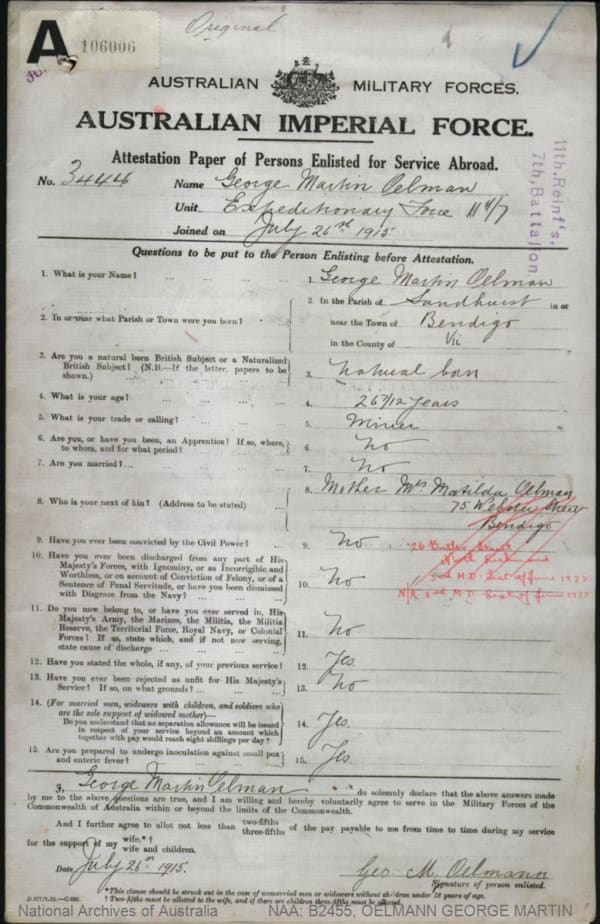 Original
A 106006
AUSTRALIAN MILITARY FORCES.
AUSTRALIAN IMPERIAL FORCE.
Attestation Paper of Persons Enlisted for Service Abroad.
11th. Reinf's.
7th. Battalion
No. 3444 Name George Martin Oelman
Unit Expeditionary Force 11th/7
Joined on July 26th 1915.
Questions to be put to the Person Enlisting before Attestation.
1. What is your Name? ... ... ... ... 1. George Martin Oelman
2. In or near what Parish or Town were you born? ... 2. In the Parish of Sandhurst in or
near the Town of Bendigo
in the County of Vic
3. Are you a natural born British Subject or a Naturalized
British Subject? (N.B.—If the latter, papers to be
shown.) ... ... ... ... 3. Natural born
4. What is your age? ... ... ... ... 4. 26 7/12 years
5. What is your trade or calling? ... ... ... 5. Miner
6. Are you, or have you been, an Apprentice? If so, where,
to whom, and for what period? ... ... 6. No
7. Are you married? ... ... ... ... 7. No
8. Who is your next of kin? (Address to be stated) ... 8. Mother Mrs Matilda Oelman
75 Webster Street
Bendigo
9. Have you ever been convicted by the Civil Power? ... 9. No
26 Butler Street
North Richmond
10. Have you ever been discharged from any part of His
Majesty's Forces, with Ignominy, or as Incorrigible and
Worthless, or on account of Conviction of Felony, or of a
Sentence of Penal Servitude, or have you been dismissed
with Disgrace from the Navy? ... ... 10. No
11. Do you now belong to, or have you ever served in, His
Majesty's Army, the Marines, the Militia, the Militia
Reserve, the Territorial Force, Royal Navy, or Colonial
Forces? If so, state which, and if not now serving,
state cause of discharge ... ... ... 11. No
12. Have you stated the whole, if any, of your previous service? 12. Yes.
13. Have you ever been rejected as unfit for His Majesty's
Service? If so, on what grounds? ... ... 13. No
14. (For married men, widowers with children, and soldiers who
are the sole support of widowed mother)—
Do you understand that no separation allowance will be issued
in respect of your service beyond an amount which
together with pay would reach eight shillings per day? 14. Yes.
15. Are you prepared to undergo inoculation against small pox
and enteric fever? ... ... ... 15. Yes.
I, George Martin Oelman do solemnly declare that the above answers made
by me to the above questions are true, and I am willing and hereby voluntarily agree to serve in the Military Forces of the
Commonwealth of Australia within or beyond the limits of the Commonwealth.
And I further agree to allot not less than two-fifths three-fifths of the pay payable to me from time to time during my service
for the support of my wife.*† wife and children.
Date July 26th 1915. Geo M. Oelmann
Signature of person enlisted.
*This clause should be struck out in the case of unmarried men or widowers without children under 18 years of age.
† Two-fifths must be allotted to the wife, and if there are children three-fifths must be allotted.
National Archives of Australia NAA: B2455, OELMANN GEORGE MARTIN